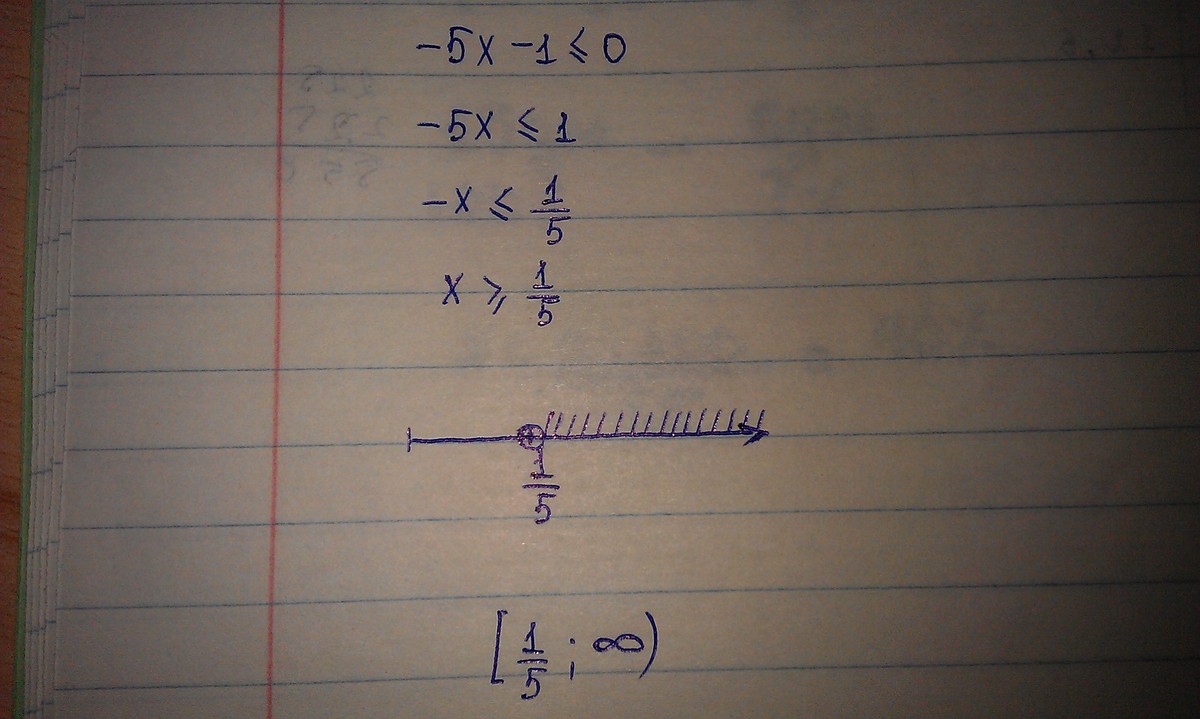 -5x -1 ≤ 0
-5x ≤ 1
-x ≤ 1/5
x ≥ 1/5
1/5
[1/5 ; ∞)